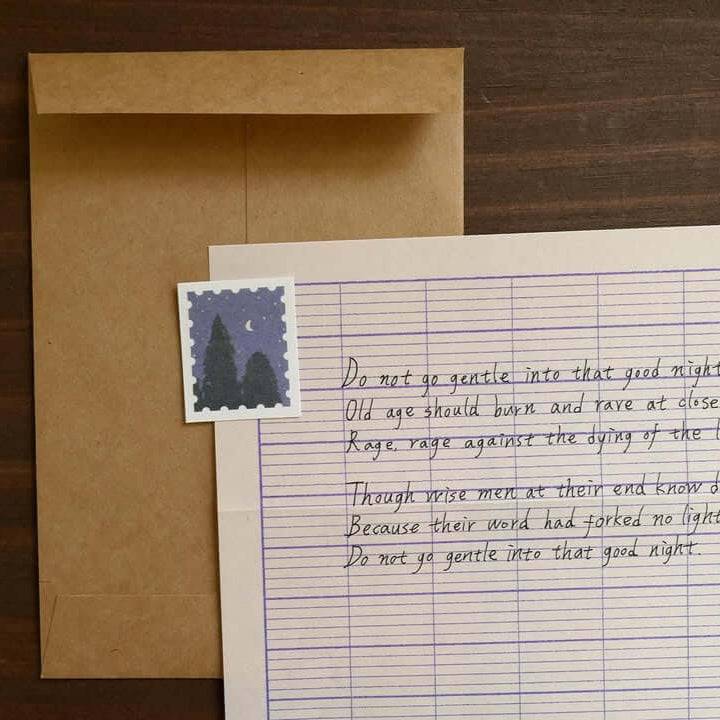 Do not go gentle into that good night
Old age should burn and rave at close
Rage, rage against the dying of the
Though wise men at their end know
Because their word had forked no light
Do not go gentle into that good night.